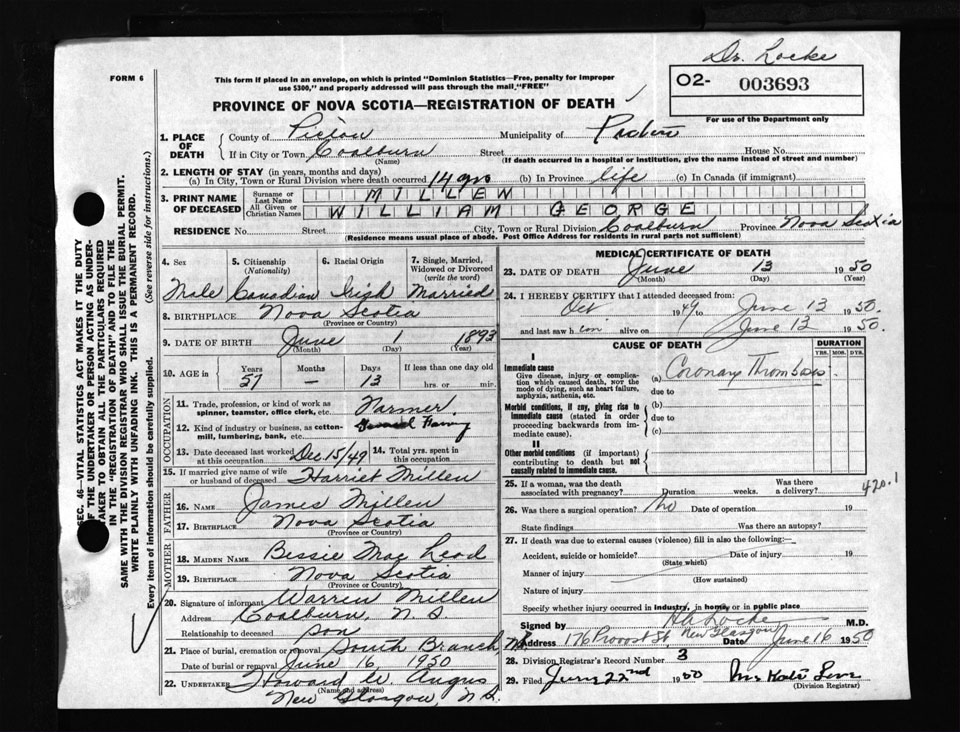 Dr. Locke
FORM 6
This form if placed in an envelope, on which is printed "Dominion Statistics—Free, penalty for improper
use $300," and properly addressed will pass through the mail "FREE"
O2- 003693
For use of the Department only
PROVINCE OF NOVA SCOTIA—REGISTRATION OF DEATH
1. PLACE OF DEATH
County of Pictou Municipality of Pictou
If in City or Town Coalburn Street House No.
(Name) (If death occurred in a hospital or institution, give the name instead of street and number)
2. LENGTH OF STAY (in years, months and days)
(a) In City, Town or Rural Division where death occurred 14 yrs (b) In Province life (c) In Canada (if immigrant)
3. PRINT NAME OF DECEASED
Surname or Last Name MILLEN
All Given or Christian Names WILLIAM GEORGE
RESIDENCE No. Street City, Town or Rural Division Coalburn Province Nova Scotia
(Residence means usual place of abode. Post Office Address for residents in rural parts not sufficient)
4. Sex 5. Citizenship (Nationality) 6. Racial Origin 7. Single, Married, Widowed or Divorced (write the word)
Male Canadian Irish Married
8. BIRTHPLACE Nova Scotia
(Province or Country)
9. DATE OF BIRTH June 1 1893
(Month) (Day) (Year)
10. AGE in Years Months Days If less than one day old
57 — 13 hrs. or min.
OCCUPATION
11. Trade, profession, or kind of work as
spinner, teamster, office clerk, etc. Farmer.
12. Kind of industry or business, as cotton-
mill, lumbering, bank, etc.
13. Date deceased last worked at this occupation Dec 15/49 14. Total yrs. spent in this occupation
15. If married give name of wife
or husband of deceased Harriet Millen
FATHER
16. Name James Millen
17. Birthplace Nova Scotia
(Province or Country)
MOTHER
18. Maiden Name Bessie Mac Leod
19. Birthplace Nova Scotia
(Province or Country)
20. Signature of informant Warren Millen
Address Coalburn, N. S.
Relationship to deceased son
21. Place of burial, cremation or removal South Branch
Date of burial or removal June 16, 1950
22. Undertaker Howard W. Angus
(Name and address)
New Glasgow, N. S.
MEDICAL CERTIFICATE OF DEATH
23. DATE OF DEATH June 13 1950
(Month) (Day) (Year)
24. I HEREBY CERTIFY that I attended deceased from:
Oct 1949 to June 13 1950.
and last saw him alive on June 13 1950.
CAUSE OF DEATH DURATION
YRS. MOS. DYS.
I
Immediate cause
Give disease, injury or complication which caused death, NOT the mode of dying, such as heart failure, asphyxia, asthenia, etc.
(a) Coronary Thrombosis
due to
Morbid conditions, if any, giving rise to immediate cause (stated in order proceeding backwards from immediate cause).
(b)
due to
(c)
II
Other morbid conditions (if important) contributing to death but not causally related to immediate cause.
25. If a woman, was the death associated with pregnancy? Duration weeks. Was there a delivery?
420.1
26. Was there a surgical operation? No Date of operation 19
State findings Was there an autopsy?
27. If death was due to external causes (violence) fill in also the following:—
Accident, suicide or homicide? Date of injury 19
(State which)
Manner of injury
(How sustained)
Nature of injury
Specify whether injury occurred in industry, in home, or in public place
Signed by Locke M.D.
Address 176 Provost St, New Glasgow Date June 16 1950
28. Division Registrar's Record Number 3
29. Filed June 22nd 1950
(Division Registrar)
SEC. 46—VITAL STATISTICS ACT MAKES IT THE DUTY
OF THE UNDERTAKER OR PERSON ACTING AS UNDER-
TAKER TO OBTAIN ALL THE PARTICULARS REQUIRED
IN THE "REGISTRATION OF DEATH" AND TO FILE THE
SAME WITH THE DIVISION REGISTRAR WHO SHALL ISSUE THE BURIAL PERMIT.
WRITE PLAINLY WITH UNFADING INK. THIS IS A PERMANENT RECORD.
Every item of information should be carefully supplied. (See reverse side for instructions.)